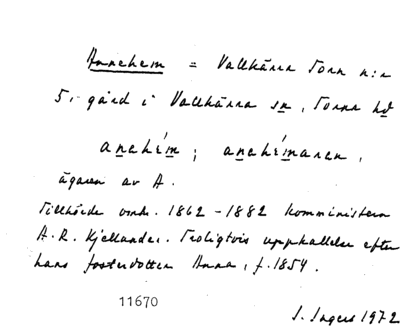 Annehem = Vallkärra Torn n:r
51 gård i Vallkärra sn, Torna hd
anehém; anehémaren,
ägaren av A.
Tillhörde omkr. 1862-1882 komministern
A.R. Kjellander. Troligtvis uppkallelse efter
hans fosterdotter Anna, f. 1854.
11670
I. Ingers 1972